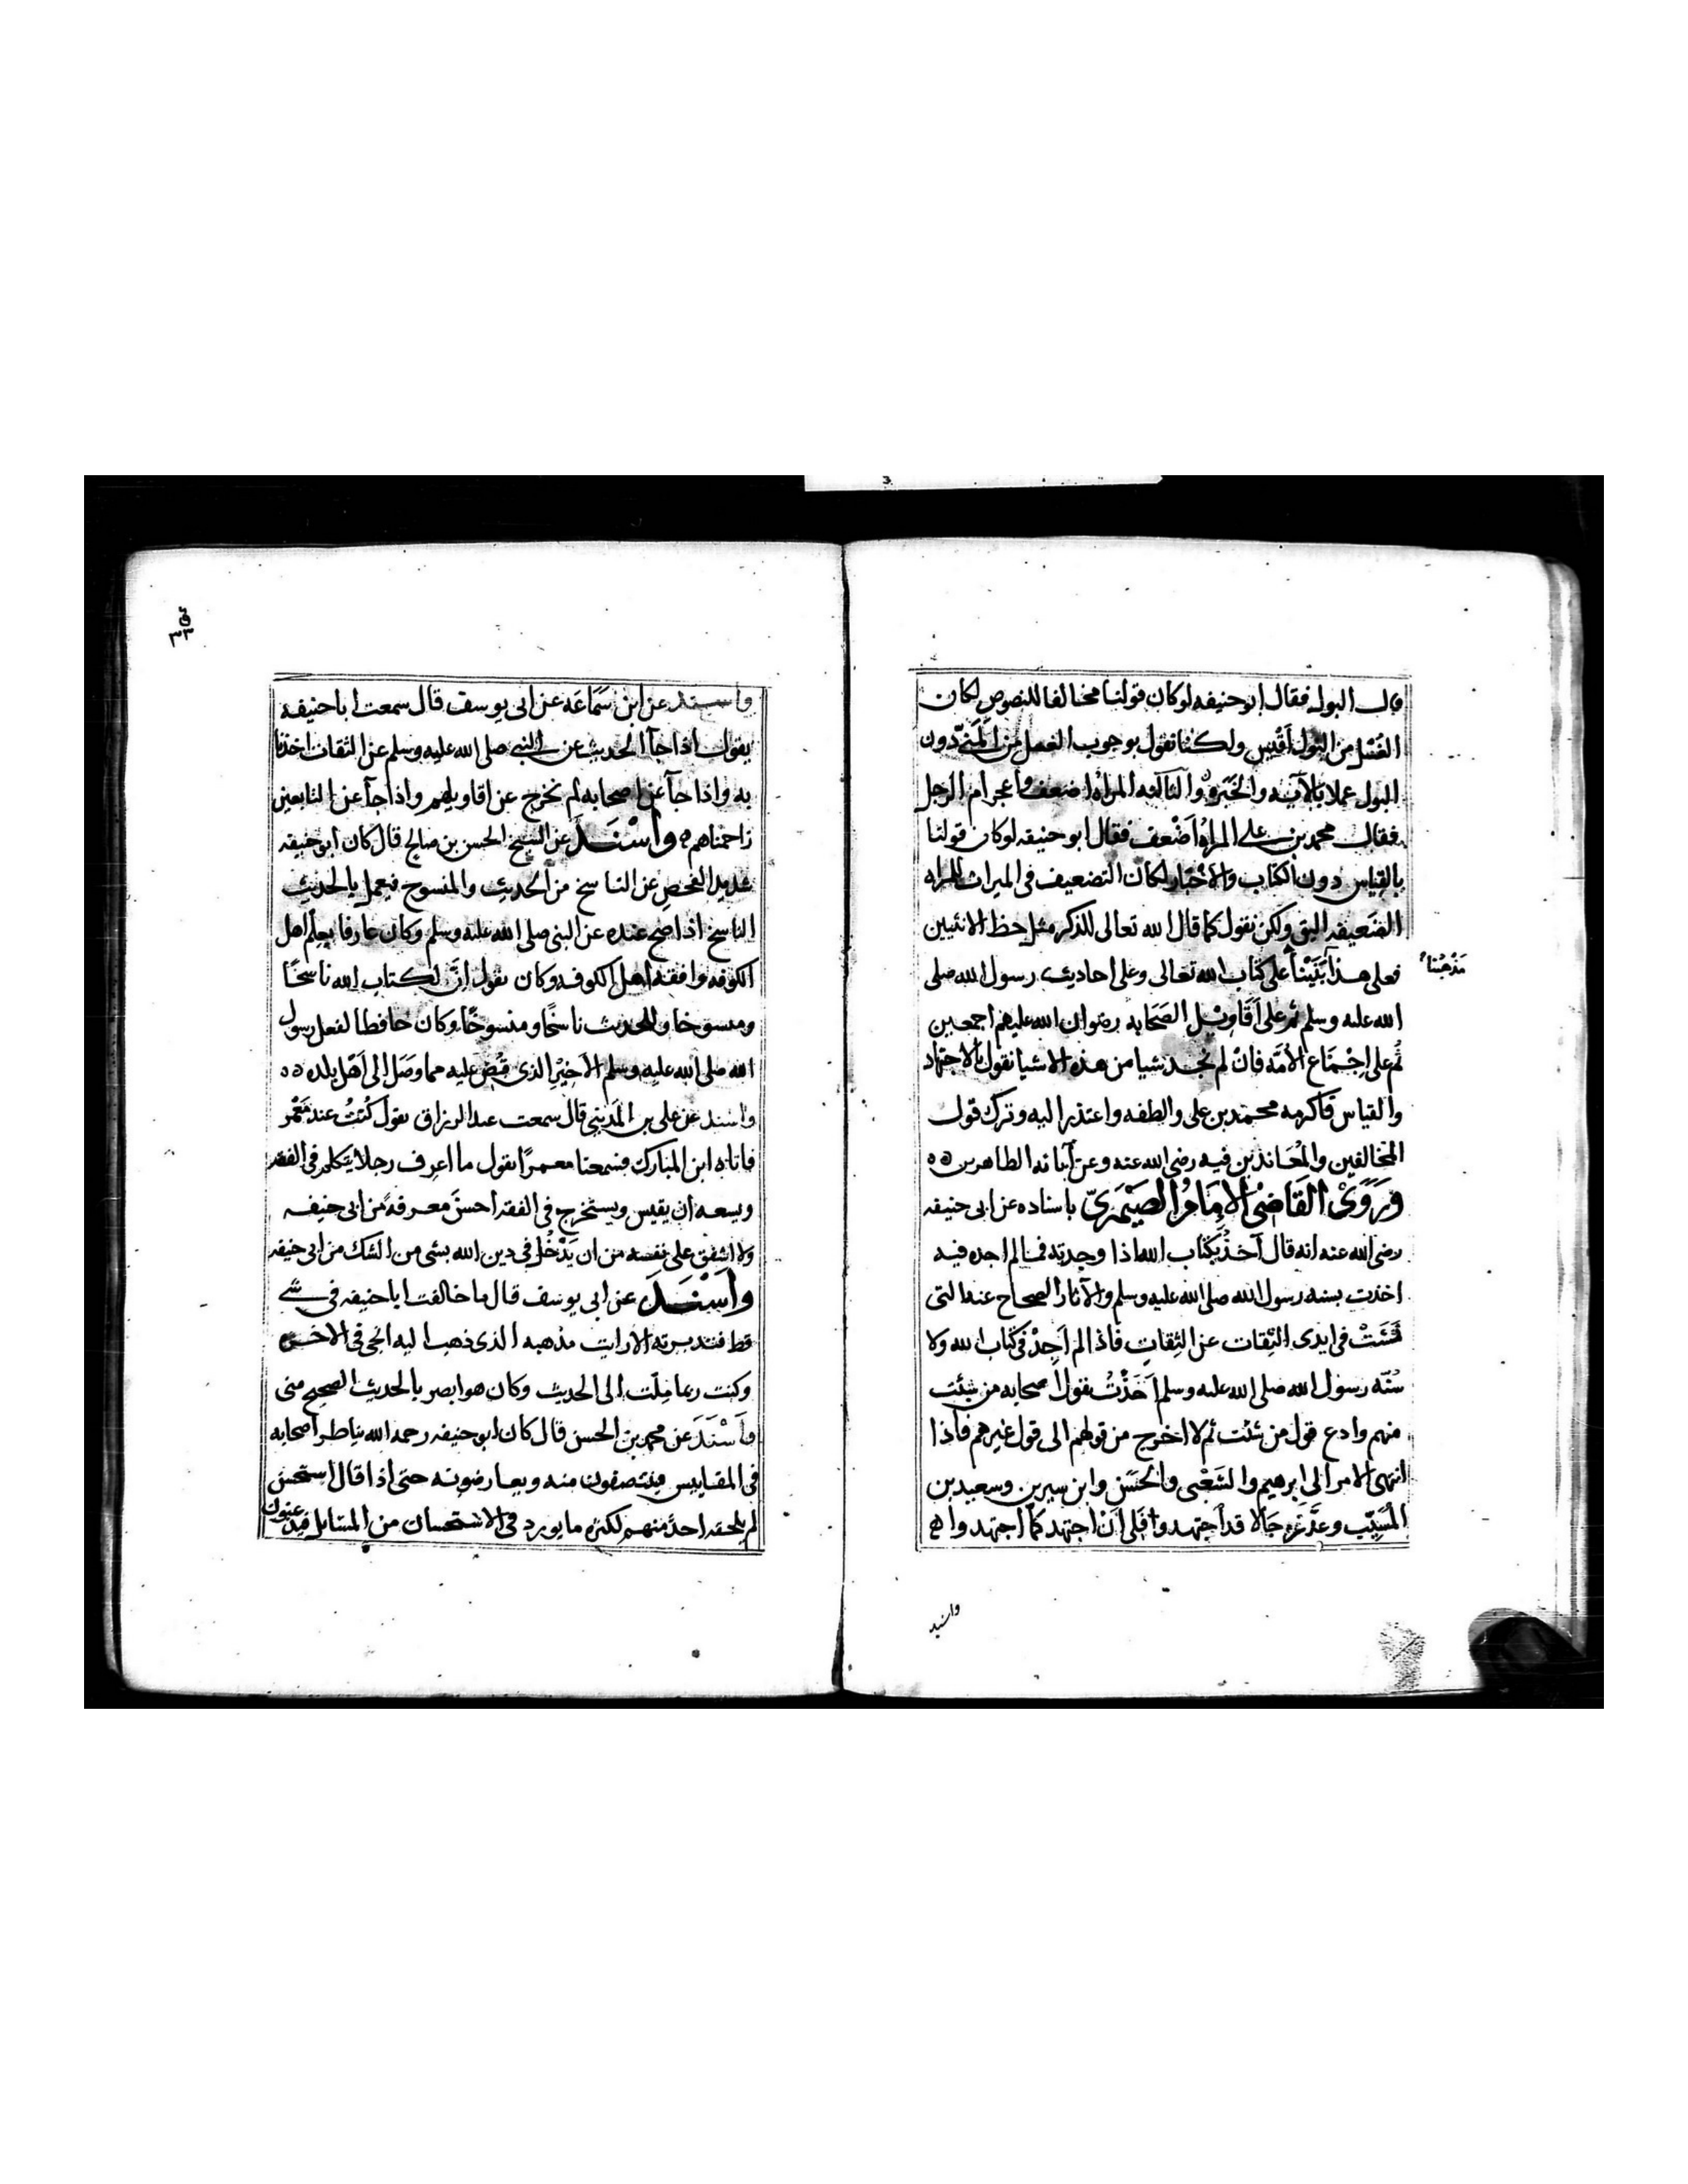 قال البول فقال ابو حنيفه لو كان قولنا مخالفا للنصوص لكان
الغُسْل من البَول اَقْيس ولكننا نقول بوجوب الغسل من المَنىّ دون
البول عملا بالآيه والخبر والثالثه المراة اضعف ام الرجل
فقال محمد بن على المراة اَضْعف فقال ابو حنيفه لو كان قولنا
بالقياس دون الكتاب والاخْبَار لكان التضعيف فى الميراث للمراه
الضعيفه اليق ولكن نقول كما قال الله تعالى للذكر مثل حظ الانثيين
فعلى هذا بَنَيْنا على كتاب الله تعالى وعلى احاديث رسول الله صلى
مَذْهبُنا
الله عليه وسلم ثم على اَقَاويْل الصَحَابه رضوان الله عليهم اجمعين
ثُم على اِجْمَاع الامّه فانْ لم نجد شيا من هذه الاشيا نقول بالاجتهاد
والقياس فاكرمه محمد بن على والطفه واعتذر اليه وترك قول
المخالفين والمُعَاندين فيه رضى الله عنه وعن آبائه الطاهرين
وَرَوَىْ القَاضىْ الاِمَامُ الصَيْمَرىّ باسناده عن ابى حنيفه
رضى الله عنه انه قال آخذُ بكتاب الله اذا وجدته فما لم اجده فيه
اخذت بسنه رسول الله صلى الله عليه وسلم والآثار الصحاح عنه التى
فَشَتْ فى ايدى الثِقات عن الثِقاتِ فاذا لم اَجِدْ فى كتاب الله ولا
سُنّه رسول الله صلى الله عليه وسلم اَخَذْتُ بقول اصحابه من شئت
منهم وادع قول من شئت ثم لا اخرج من قولهم الى قول غيرهم فاذا
انتهى الامر الى ابرهيم والشَعْبى والحَسَن وابن سيرين وسعيد بن
المُسَيّب وعدَّ رجَالا قد اجتهدوا فلى اَنْ اجتهد كما اجتهدوا
واسند
٣٣
واسند عن ابن سَمَاعَه عن ابى يوسف قال سمعت ابا حنيفه
يقول اذا جآ الحديث عن النبى صلى الله عليه وسلم عن الثقات اخذنا
به واذا جآ عن اصحابه لم نخرج عن اقاويلهم واذا جآ عن التابعين
زاحمناهم وَاَسْنَدَ عن الشيخ الحسن بن صالح قال كان ابو حنيفه
شديد الفحصِ عن الناسخ من الحديث والمنسوخ فيعمل بالحديث
الناسخ اذا صح عنده عن النبى صلى الله عليه وسلم وكان عارفا بعلم اهل
الكوفه وافقه اهل الكوفه وكان يقول انَّ لكتاب الله ناسخًا
ومنسوخا وللحديث ناسخًا ومنسوخًا وكان حافظا لفعل رسول
الله صلى الله عليه وسلم الاَخيْرِ الذى قُبض عليه مما وصَل الى اَهْل بلده
واسند عن على بن المَدينى قال سمعت عبد الرزاق يقول كُنتُ عند مَعْمر
فاتاه ابن المبارك فسمعنا معمرًا يقول ما اعرف رجلا يتكلم فى الفقه
ويسعه ان يقيس ويستخرج فى الفقه احسنَ معرفهً من ابى حنيفه
ولا اشفق على نفسه من ان يَدْخُل فى دين الله بشى من الشك من ابى حنيفه
وَاَسْنَدَ عن ابى يوسف قال ما خالفت ابا حنيفه فى شى
قط فتدبرته الا رايت مذهبه الذى ذهب اليه انجى فى الاخره
وكنت ربما مِلْت الى الحديث وكان هو ابصر بالحديث الصحيح منى
وَاَسْنَدَ عن محمد بن الحسن قال كان ابو حنيفه رحمه الله يناظر اصحابه
فى المقاييس فينتصفون منه ويعارضونه حتى اذا قال استحسن
لم يلحقه احدٌ منهم لكثره ما يورد فى الاستحسان من المسايل